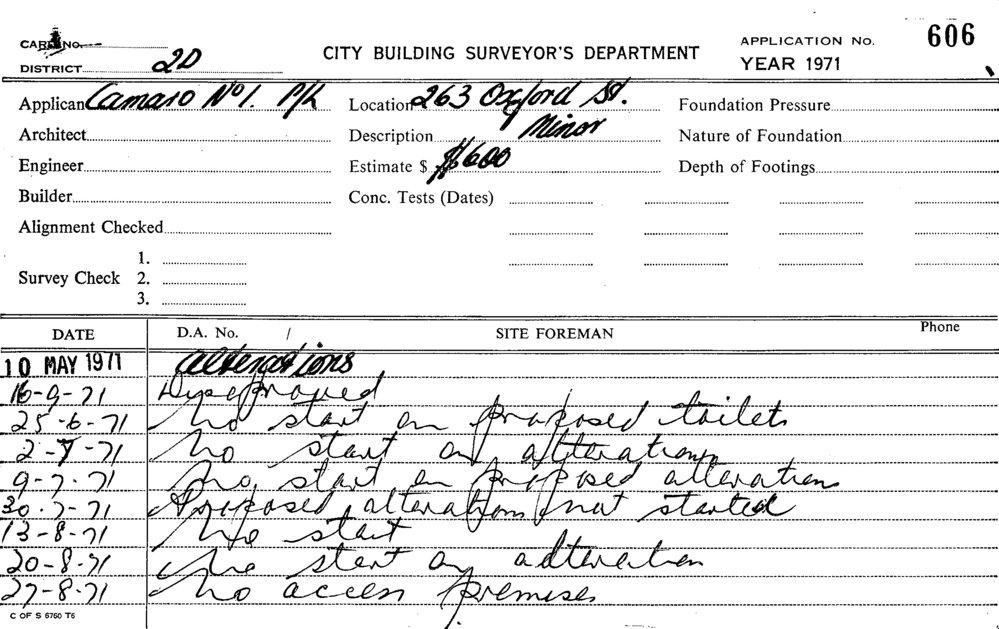 CARD No.
DISTRICT 2D
CITY BUILDING SURVEYOR'S DEPARTMENT
APPLICATION No. 606
YEAR 1971
Applicant Camaro No 1. P/L
Location 263 Oxford St.
Foundation Pressure
Architect
Description Minor
Nature of Foundation
Engineer
Estimate $ $600
Depth of Footings
Builder
Conc. Tests (Dates)
Alignment Checked
Survey Check
1.
2.
3.
DATE D.A. No. / SITE FOREMAN Phone
10 MAY 1971 Alterations
16-9-71
25-6-71 No start on proposed toilets
2-7-71 No start on alterations
9-7-71 No start on proposed alterations
30-7-71 Proposed alterations not started
13-8-71 No start
20-8-71 No start on alteration
27-8-71 No access premises
C OF S 6760 T6